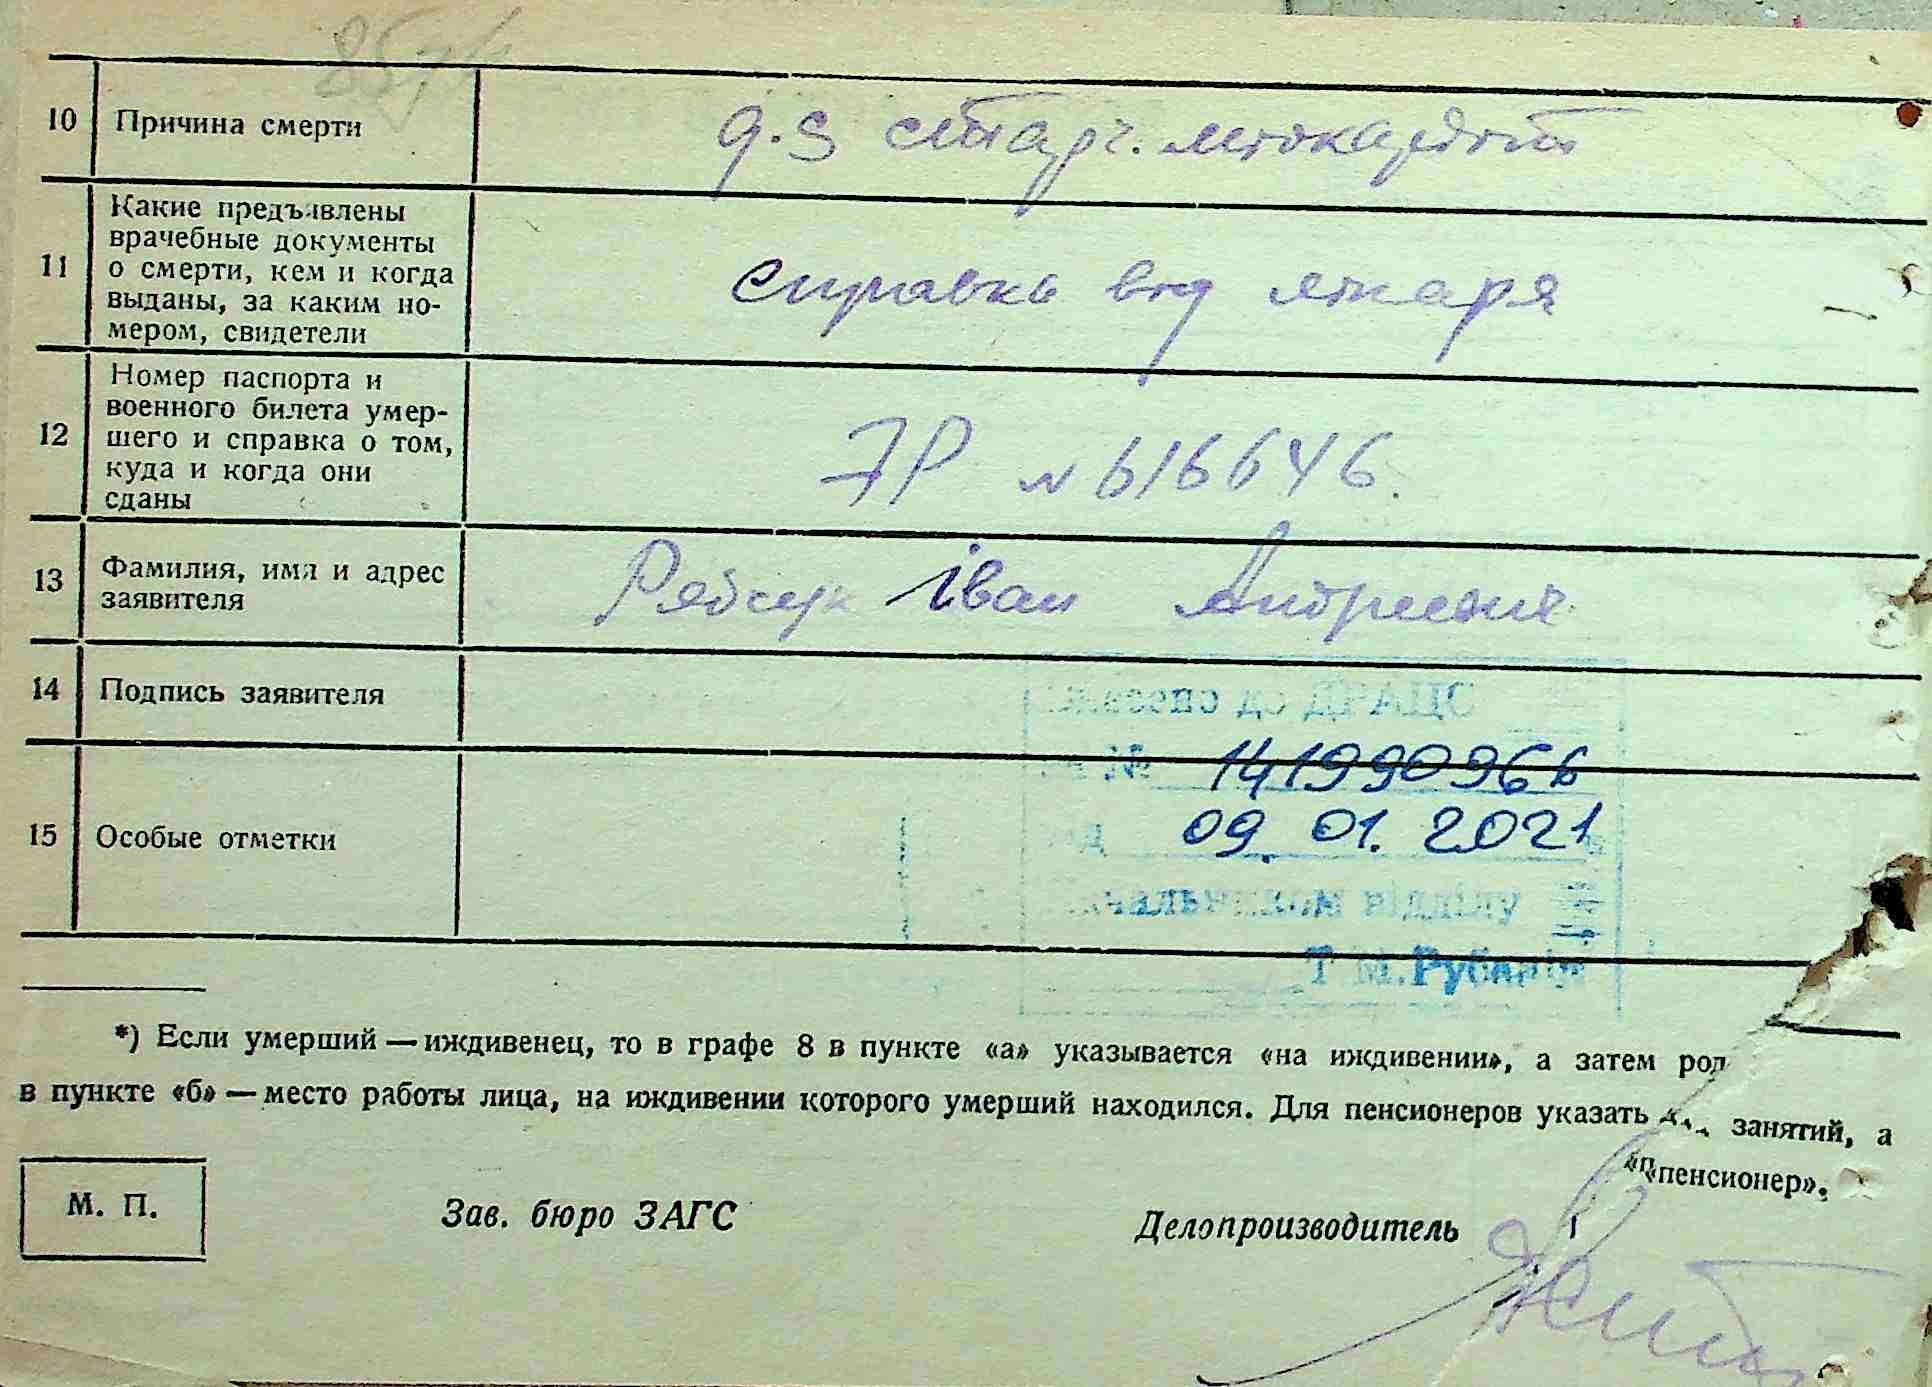 10 Причина смерти
д.з старч. міокардіт
11 Какие предъявлены
врачебные документы
о смерти, кем и когда
выданы, за каким но-
мером, свидетели
справка від лікаря
12 Номер паспорта и
военного билета умер-
шего и справка о том,
куда и когда они
сданы
№ 616646.
13 Фамилия, имя и адрес
заявителя
Рябчук Іван Андреевич
14 Подпись заявителя
внесено до ДРАЦС
№ 14199096
15 Особые отметки
09.01.2021
начальником відділу
Т М.
*) Если умерший — иждивенец, то в графе 8 в пункте «а» указывается «на иждивении», а затем род
в пункте «б» — место работы лица, на иждивении которого умерший находился. Для пенсионеров указать занятий, а
«пенсионер».
М. П.
Зав. бюро ЗАГС
Делопроизводитель